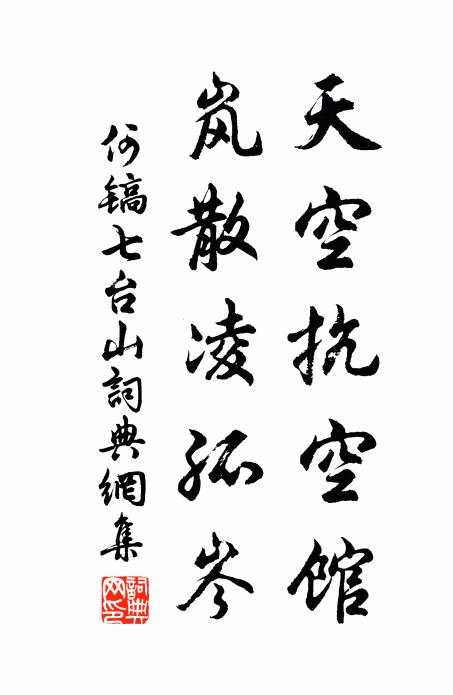 天空抗空馆
岚散凌孤岑
何镐七台山詞典網集
詞典网印